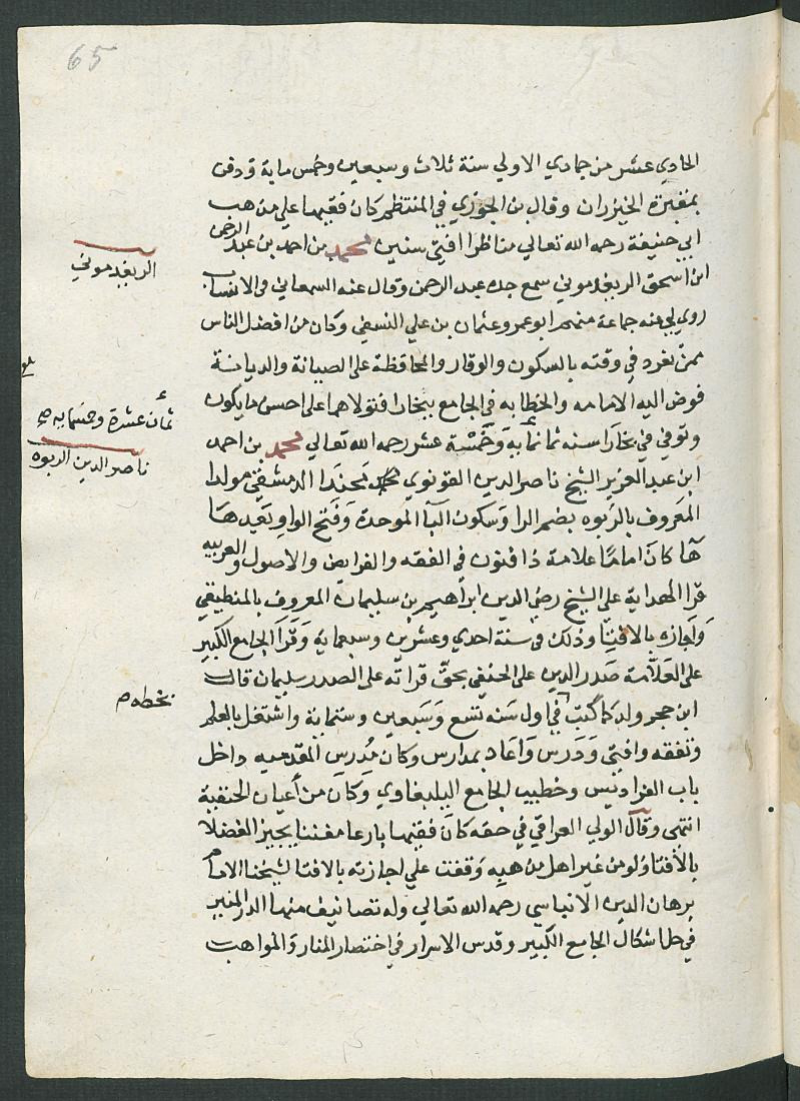 65
الحادي عشر من جمادي الاولي سنة ثلاث وسبعين وخمس ماية ودفن
بمقبرة الخيزران وقال بن الجوزي في المنتظم كان فقيها علي مذهب
ابي حنيفة رحمه الله تعالي مناظرا افتي سنين محمد بن احمد بن عبد الرحمن
ابن اسحق الريغدموني سمع جده عبد الرحمن وقال عنه السمعاني في الانساب
الريغدموني
روي لي عنه جماعة منهم ابو عمرو عثمان بن علي النسفي وكان من افضل الناس
ممن تفرد في وقته بالسكون والوقار والمحافظة علي الصيانة والديانة
فوض اليه الامامه والخطابه في الجامع ببخارا فتولاهما علي احسن ما يكون
ثمان عشرة وخمسمايه صح
وتوفي في بخارا سنه ثمانمأية وخمسة عشر رحمه الله تعالي محمد بن احمد
ناصر الدين الربوه
ابن عبد العزيز الشيخ ناصر الدين القونوي محتدا الدمشقي مولدا
المعروف بالربوه بضم الرا وسكون البا الموحدة وفتح الواو بعدها
ها كان اماما علامة ذا فنون في الفقه والفرايض والاصول والعربيه
قرا الهداية علي الشيخ رضي الدين ابراهيم بن سليمان المعروف بالمنطيقي
واجازه بالافتا وذلك في سنة احدي وعشرين وسبعماية وقرا الجامع الكبير
علي العلامة صدر الدين علي الحنفي بحق قراته علي الصدر سليمان قال
بخطه م
ابن حجر ولد كما كتب في اول سنه تسع وسبعين وستماية واشتغل بالعلم
وتفقه وافتي ودرس واعاد بمدارس وكان مدرس المقدميه داخل
باب الفراديس وخطيب الجامع اليلبغاوي وكان من أعيان الحنفية
انتهي وقال الولي العراقي في حقه كان فقيها بارعا مفننا يجيز الفضلا
بالأفتا ولو من غير اهل مذهبه وقفت علي اجازته بالافتا لشيخنا الامام
برهان الدين الانباسي رحمه الله تعالي وله تصانيف منها الدر المنير
في حل اشكال الجامع الكبير وقدس الاسرار في اختصار المنار والمواهب